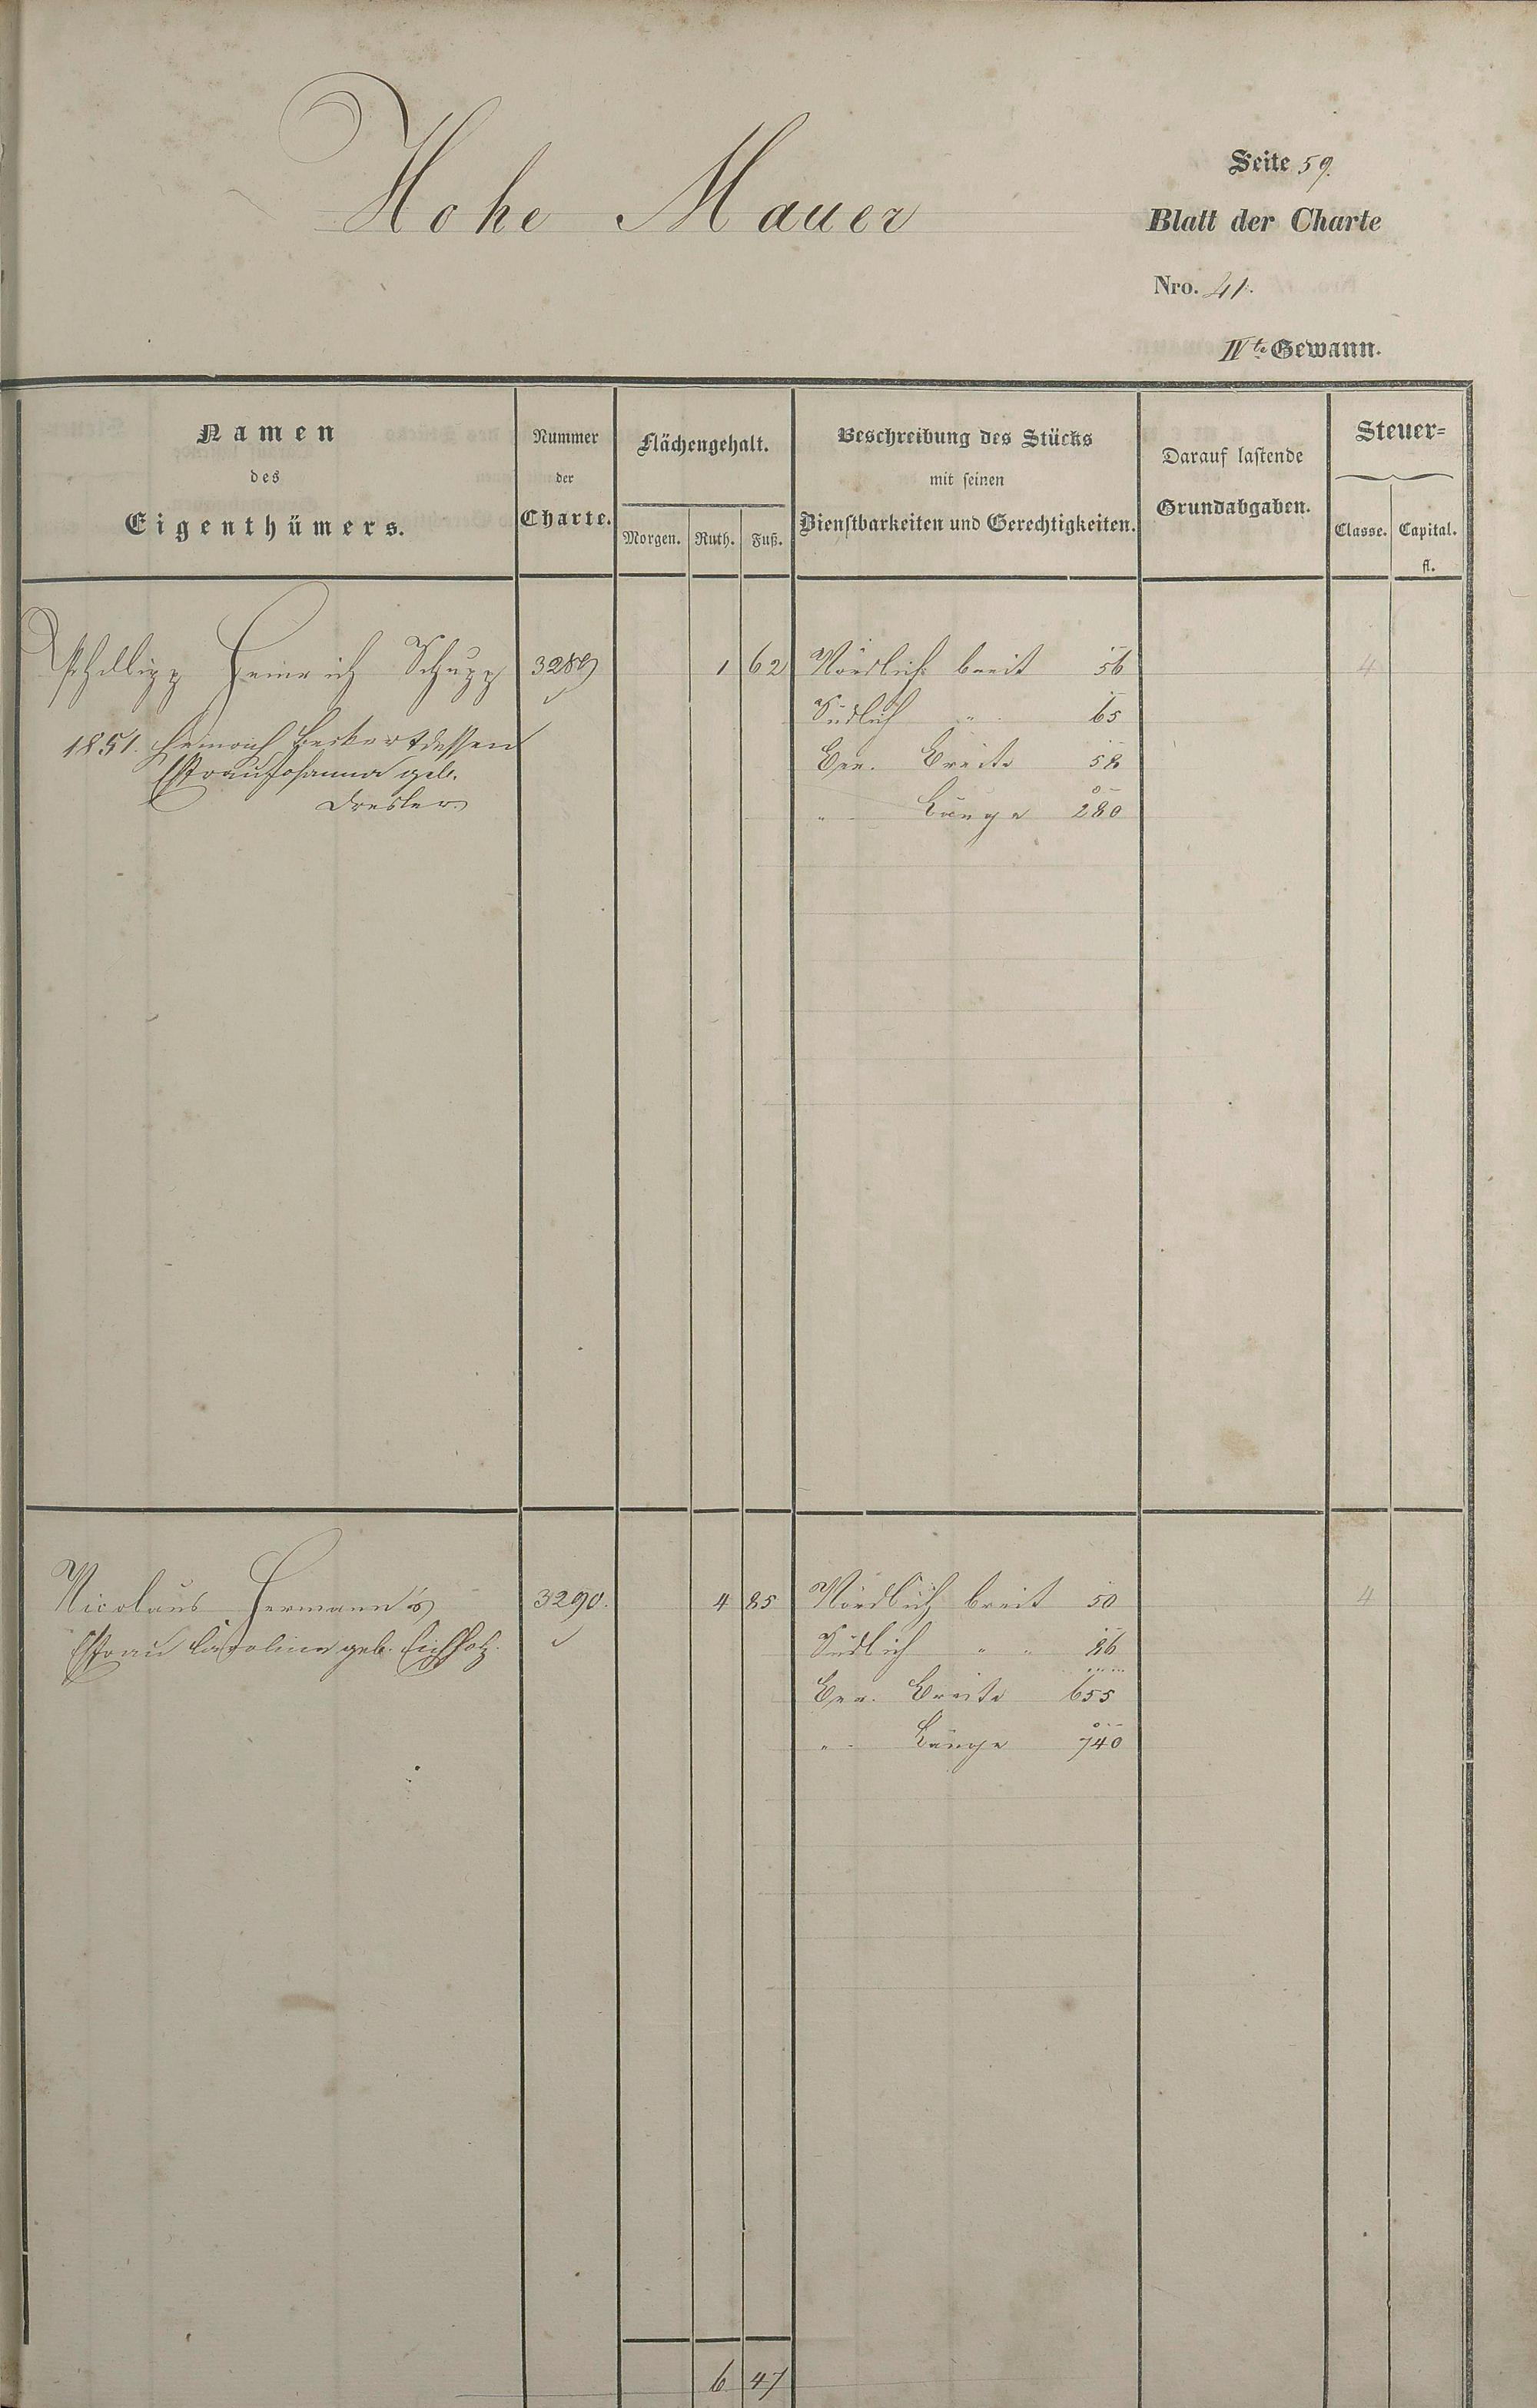 Hohe Mauer
Seite 59.
Blatt der Charte
Nro. 41.
IVte Gewann.
Namen
des
Eigenthümers.
Nummer
der
Charte.
Flächengehalt.
Morgen. Ruth. Fuß.
Beschreibung des Stücks
mit seinen
Dienstbarkeiten und Gerechtigkeiten.
Darauf lastende
Grundabgaben.
Steuer-
Classe. Capital.
fl.
Philipp Heinrich Schupp 3289 1 62 Nördlich breit 56 4
Südlich " 65
1851. Heinrich Heckert dessen
Ger. Breite 58
Ehefrau Johanna geb.
Dresler
" Länge 280
Nicolaus Hermann's 3290. 4 85 Nördlich breit 50 4
Ehefrau Caroline geb. Eichholz. Südlich " " 86
Ger. Breite 655
" Länge 740
6 47